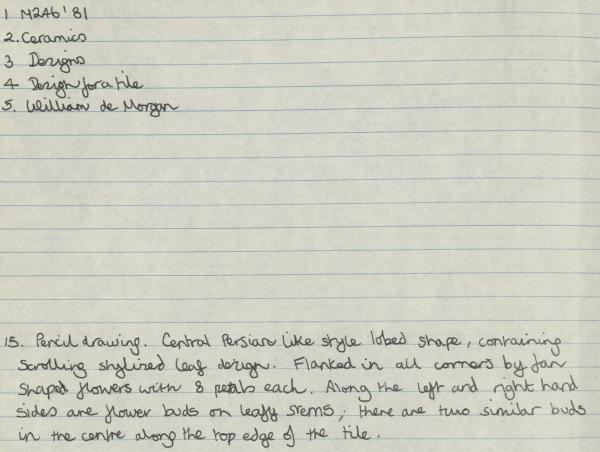 1 M246'81
2. Ceramics
3 Designs
4 Design for a tile
5. William de Morgan
15. Pencil drawing. Central Persian like style lobed shape, containing
scrolling stylized leaf design. Flanked in all corners by fan
shaped flowers with 8 petals each. Along the left and right hand
sides are flower buds on leafy stems, there are two similar buds
in the centre along the top edge of the tile.